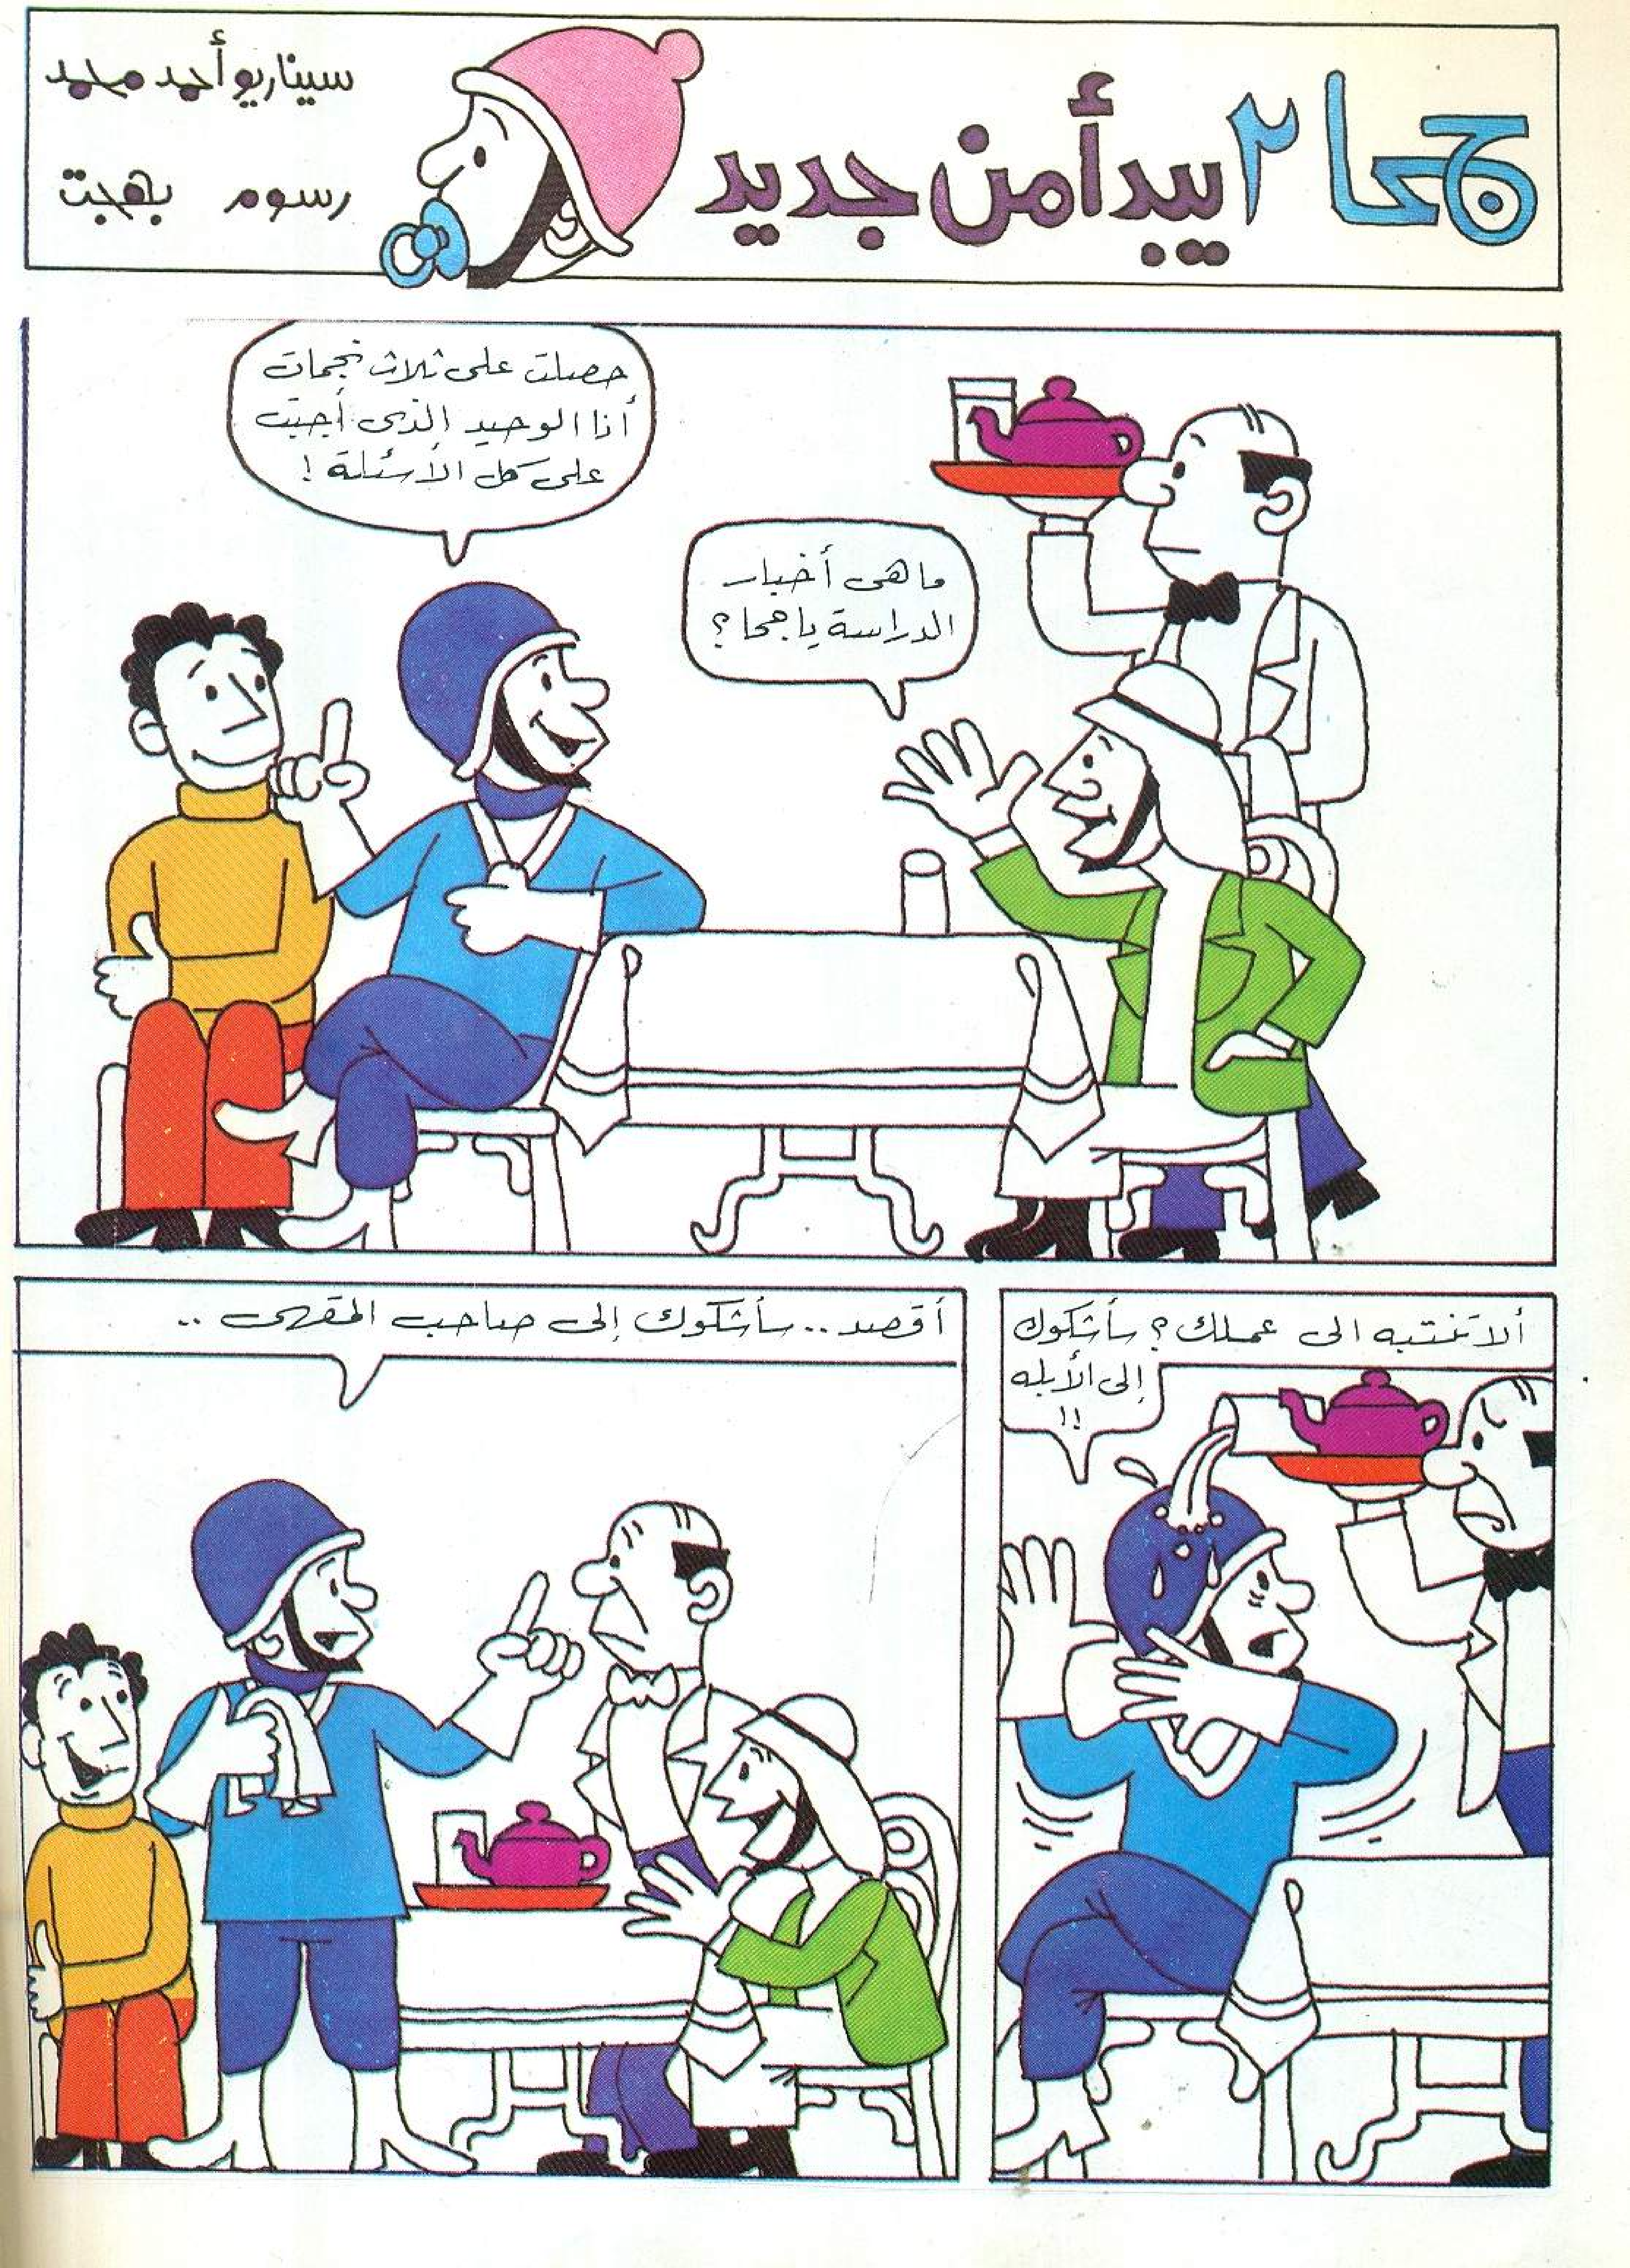 جحا ٢ يبدأ من جديد
سيناريو أحمد محمد
رسوم بهجت
ما هى أخبار
الدراسة يا جحا ؟
حصلت على ثلاث نجمات
أنا الوحيد الذى أجبت
على كل الأسئلة !
ألا تنتبه الى عملك ؟ سأشكوك
إلى الأبله
!!
أقصد .. سأشكوك إلى صاحب المقهى ..